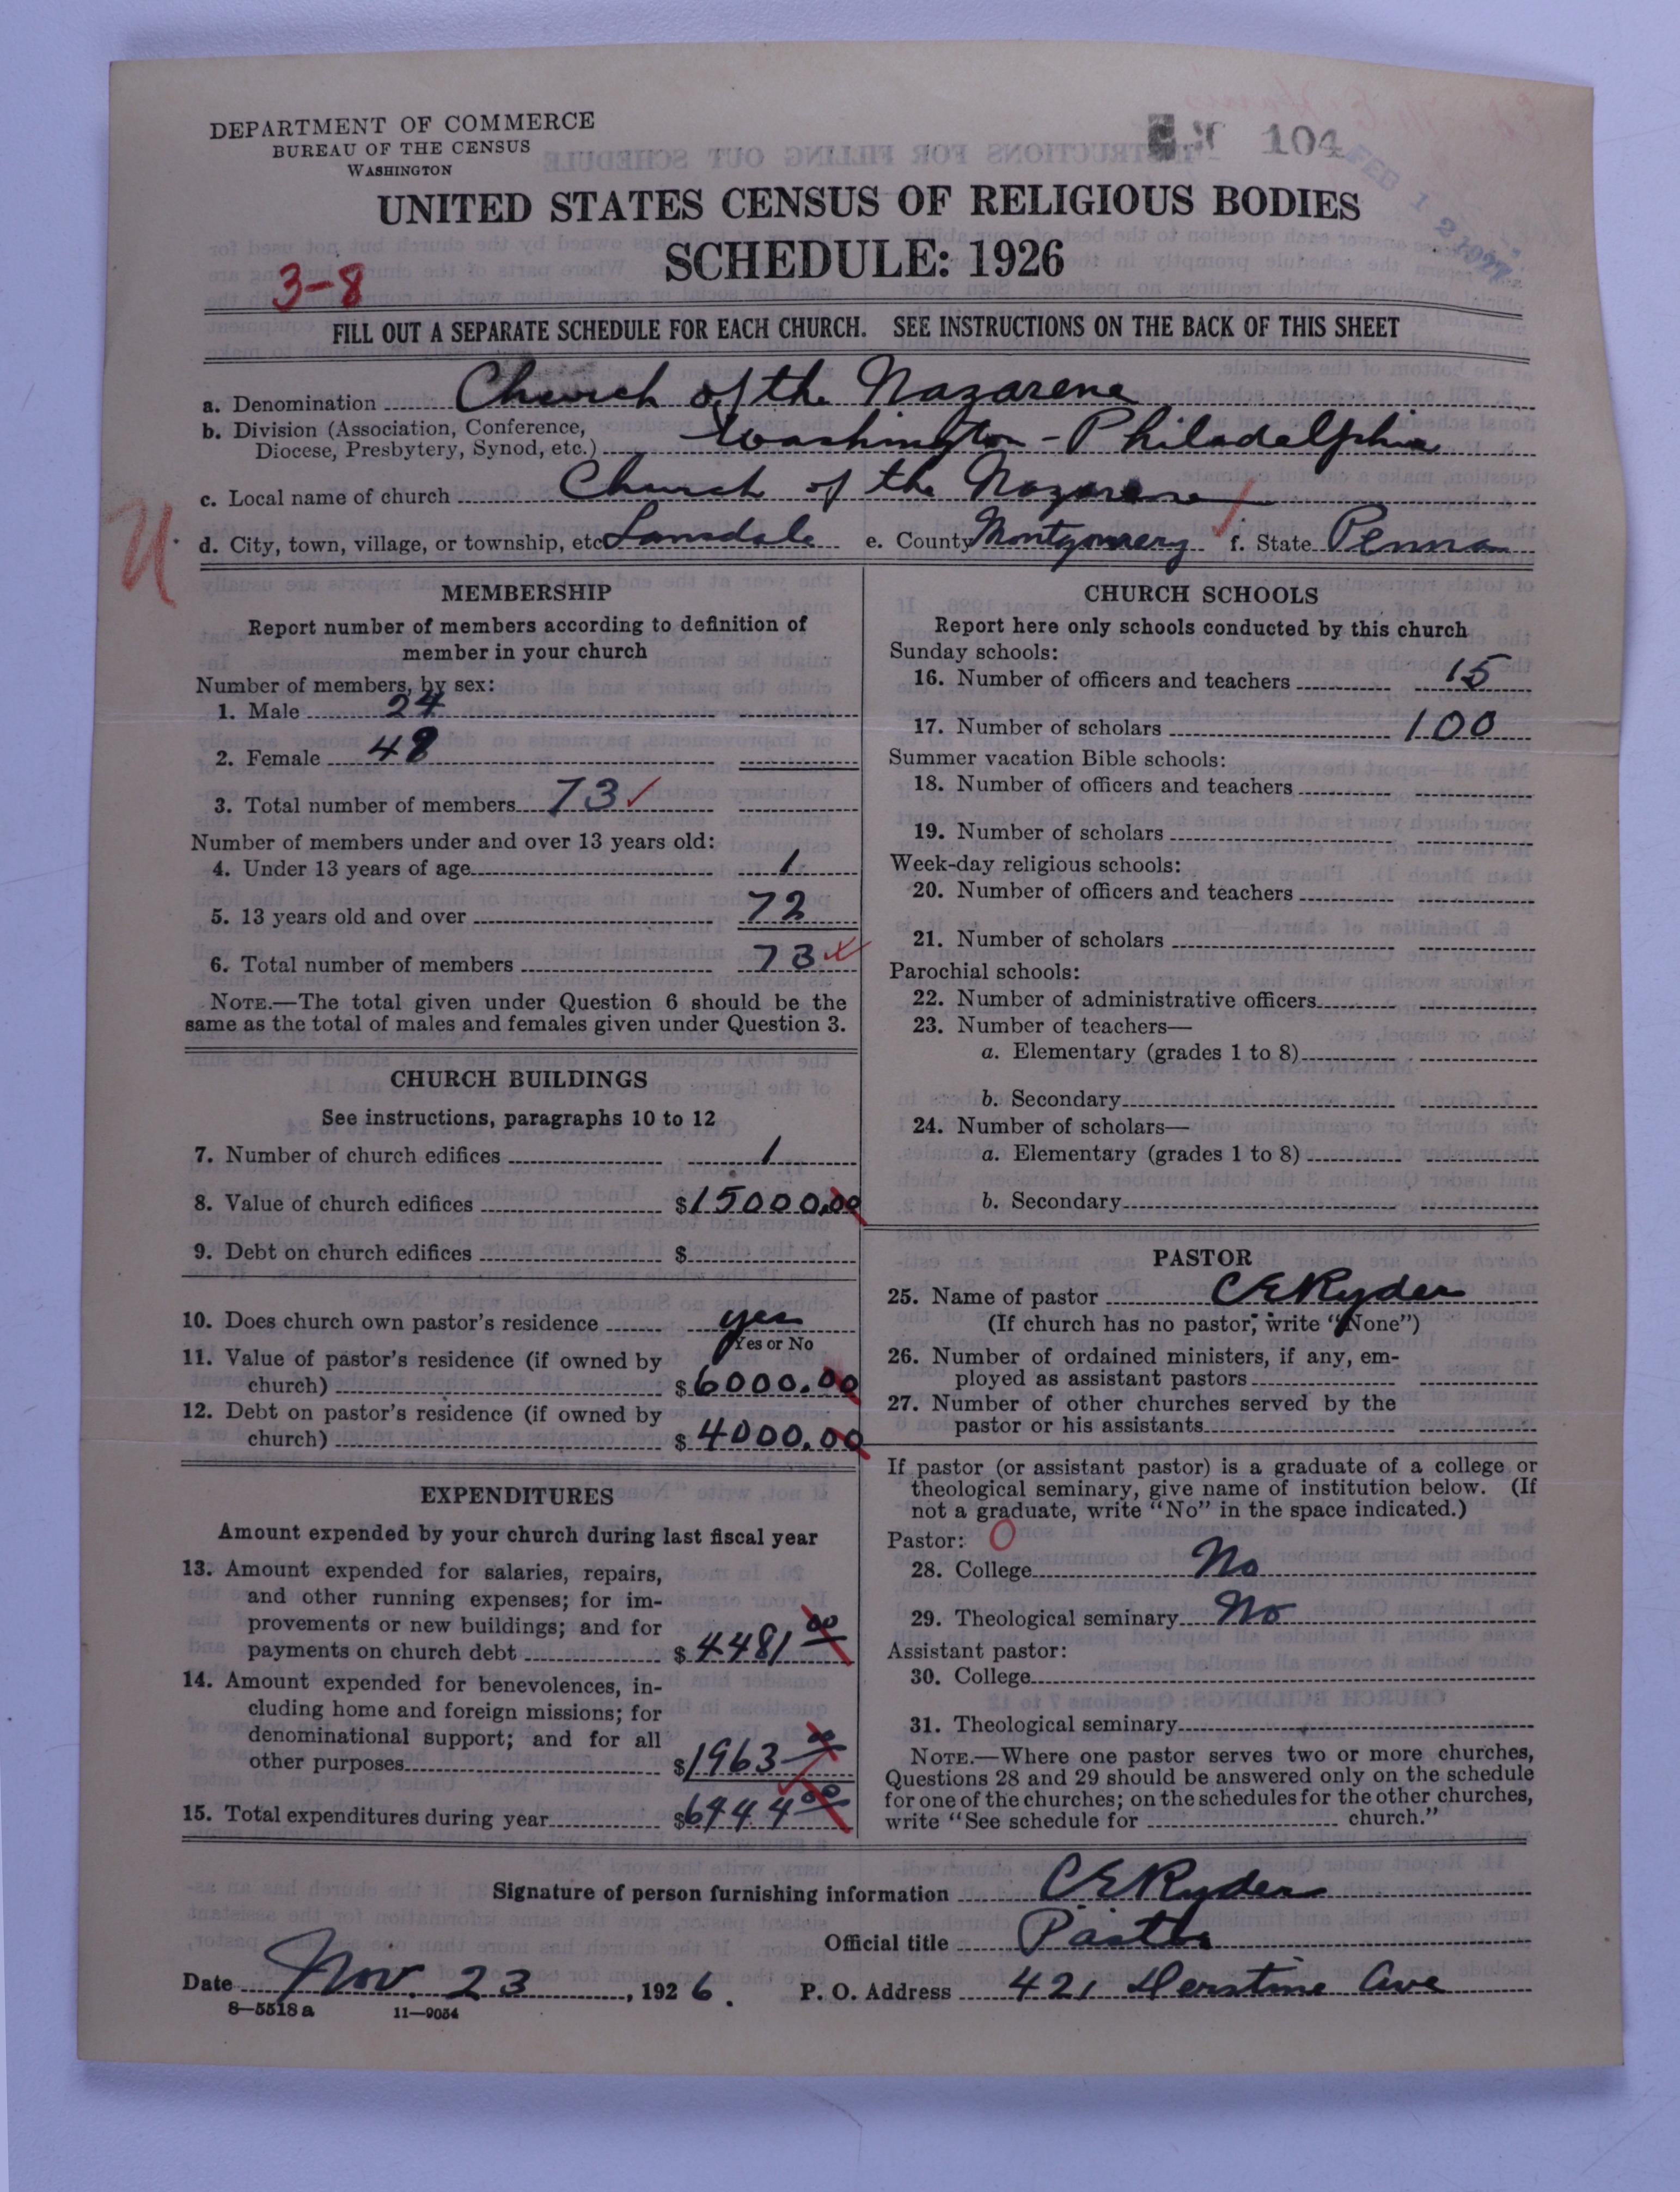 DEPARTMENT OF COMMERCE
BUREAU OF THE CENSUS
WASHINGTON
104
FEB 12 1927
UNITED STATES CENSUS OF RELIGIOUS BODIES
SCHEDULE: 1926
3-8
FILL OUT A SEPARATE SCHEDULE FOR EACH CHURCH. SEE INSTRUCTIONS ON THE BACK OF THIS SHEET
a. Denomination Church of the Nazarene
b. Division (Association, Conference, Diocese, Presbytery, Synod, etc.) Washington - Philadelphia
c. Local name of church Church of the Nazarene
d. City, town, village, or township, etc. Lansdale e. County Montgomery f. State Penna
MEMBERSHIP
Report number of members according to definition of
member in your church
Number of members, by sex:
1. Male 24
2. Female 49
3. Total number of members 73
Number of members under and over 13 years old:
4. Under 13 years of age 1
5. 13 years old and over 72
6. Total number of members 73
NOTE.—The total given under Question 6 should be the
same as the total of males and females given under Question 3.
CHURCH BUILDINGS
See instructions, paragraphs 10 to 12
7. Number of church edifices 1
8. Value of church edifices $15000.00
9. Debt on church edifices $
10. Does church own pastor's residence yes
Yes or No
11. Value of pastor's residence (if owned by
church) $6000.00
12. Debt on pastor's residence (if owned by
church) $4000.00
EXPENDITURES
Amount expended by your church during last fiscal year
13. Amount expended for salaries, repairs,
and other running expenses; for im-
provements or new buildings; and for
payments on church debt $4481 00
14. Amount expended for benevolences, in-
cluding home and foreign missions; for
denominational support; and for all
other purposes $1963 00
15. Total expenditures during year $6444 00
CHURCH SCHOOLS
Report here only schools conducted by this church
Sunday schools:
16. Number of officers and teachers 15
17. Number of scholars 100
Summer vacation Bible schools:
18. Number of officers and teachers
19. Number of scholars
Week-day religious schools:
20. Number of officers and teachers
21. Number of scholars
Parochial schools:
22. Number of administrative officers
23. Number of teachers—
a. Elementary (grades 1 to 8)
b. Secondary
24. Number of scholars—
a. Elementary (grades 1 to 8)
b. Secondary
PASTOR
25. Name of pastor C E Ryder
(If church has no pastor, write "None")
26. Number of ordained ministers, if any, em-
ployed as assistant pastors
27. Number of other churches served by the
pastor or his assistants
If pastor (or assistant pastor) is a graduate of a college or
theological seminary, give name of institution below. (If
not a graduate, write "No" in the space indicated.)
Pastor: 0
28. College No
29. Theological seminary No
Assistant pastor:
30. College
31. Theological seminary
NOTE.—Where one pastor serves two or more churches,
Questions 28 and 29 should be answered only on the schedule
for one of the churches; on the schedules for the other churches,
write "See schedule for church."
Signature of person furnishing information C E Ryder
Official title Pastor
Date Nov. 23, 1926. P. O. Address 421 Derstine Ave
8-5518 a 11-9054